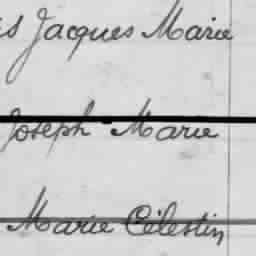 Jacques Marie
Joseph Marie
Marie Célestin